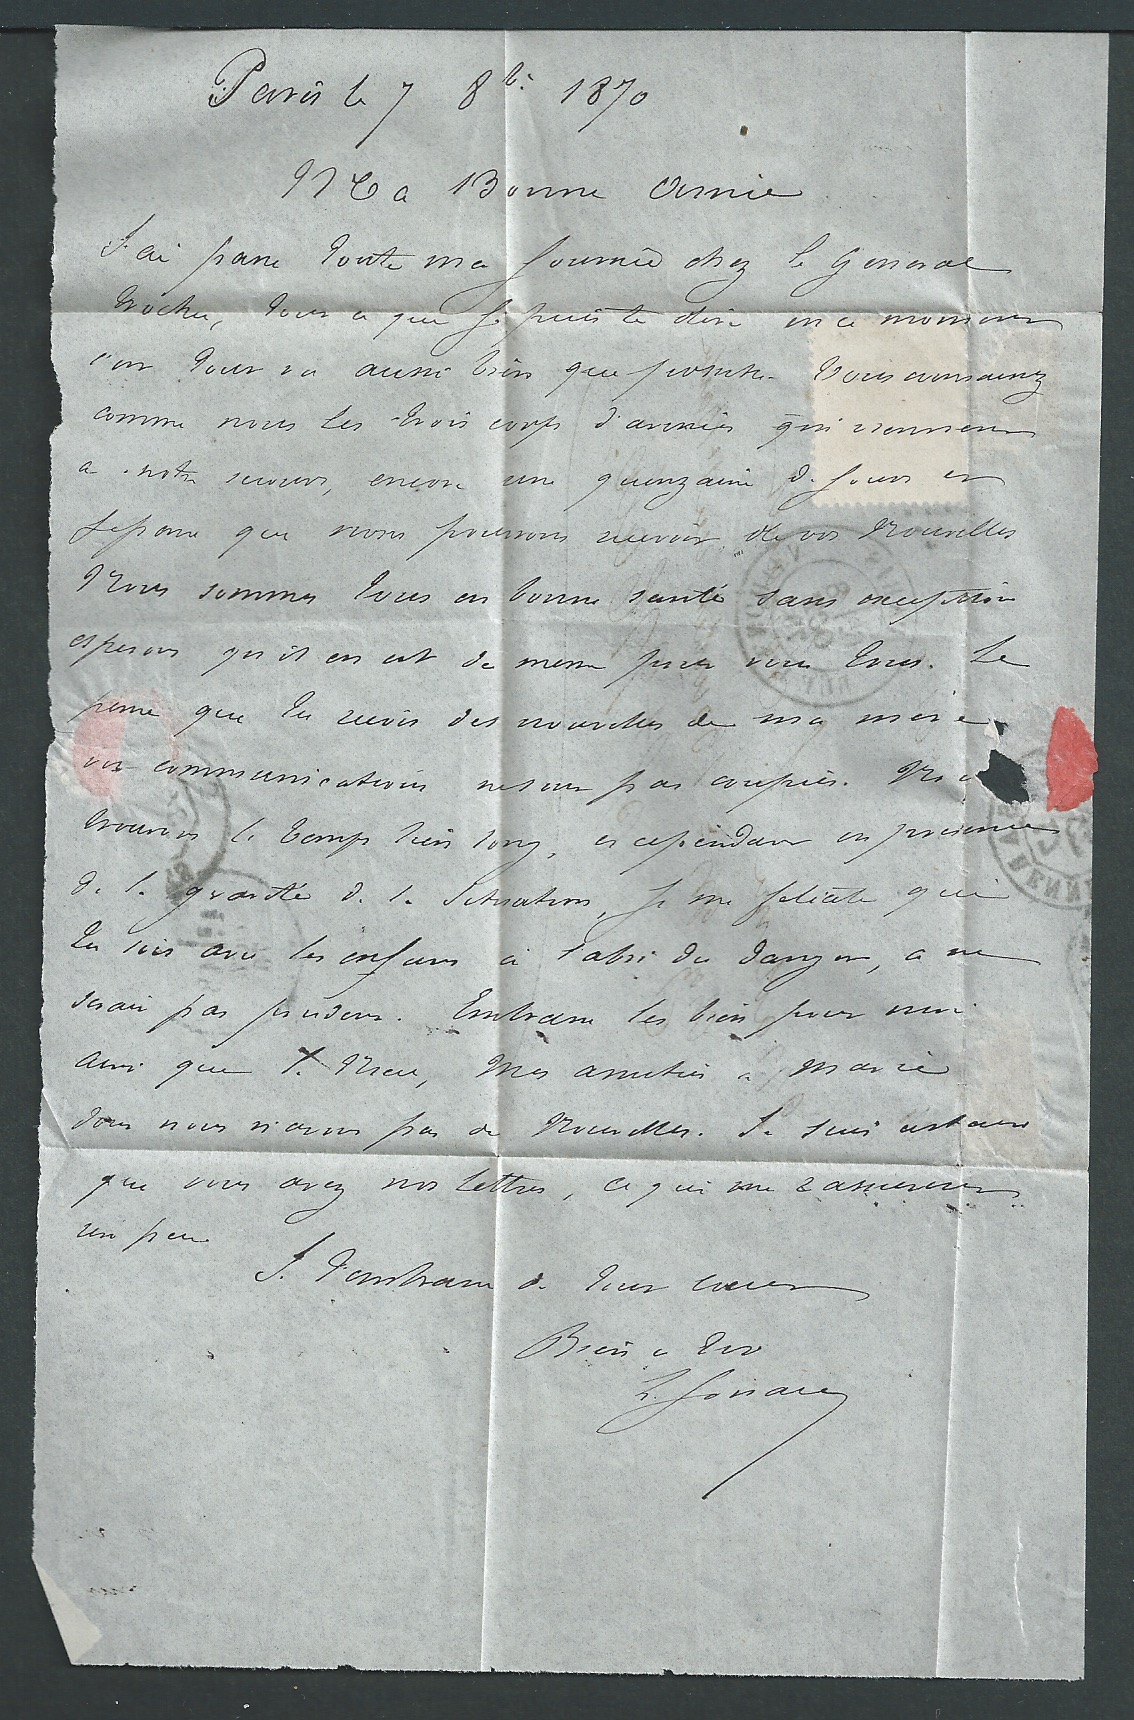 Paris le 7 8bre 1870
Ma Bonne Amie
J'ai passé toute ma journée chez le General
Trochu, tout ce que je puis te dire en ce moment
c'est tout va aussi bien que possible. Vous connaissez
comme nous les trois corps d'armées qui viennent
a notre secours, encore une quinzaine de jours et
je pense que nous pourrons recevoir de vos Nouvelles
Nous sommes tous en bonne santé sans exception
esperons qu'il en est de meme pour vous tous. Je
pense que tu reçois des nouvelles de ma mère
vos communications ne sont pas coupées. Nous
trouvons le temps bien long, et cependant en présence
de la gravité de la Situation, je me felicite que
tu sois avec les enfants à l'abri du danger, ce ne
serait pas prudent. Embrasse les bien pour moi
ainsi que Mes amitiés a Marie
dont nous n'avons pas de Nouvelles. Je suis certain
que vous avez nos lettres, ce qui me
un peu
Je t'embrasse de tout coeur
Bien a toi